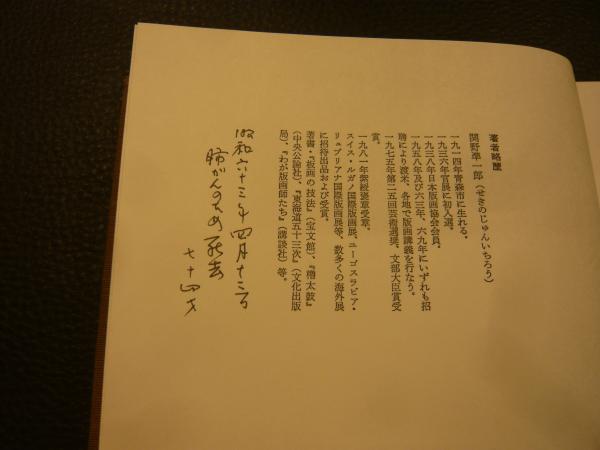 著者略歴
関野準一郎（せきのじゅんいちろう）
一九一四年青森市に生れる。
一九三六年官展に初入選。
一九三八年日本版画協会会員。
一九五八年及び六三年、六九年にいずれも招
聘により渡米、各地で版画講義を行なう。
一九七五年第二五回芸術選奨、文部大臣賞受
賞。
一九八一年紫綬褒章受章。
スイス・ルガノ国際版画展、ユーゴスラビア・
リュブリアナ国際版画展等、数多くの海外展
に招待出品および受賞。
著書・『板画の技法』（宝文館）、『櫓太鼓』
（中央公論社）、『東海道五十三次』（文化出版
局）、『わが版画師たち』（講談社）等。
昭和六十三年四月十三日
肺がんのため死去
七十四才